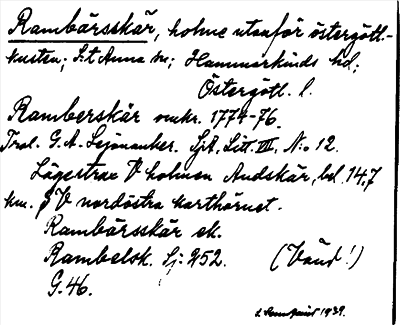 Rambärsskär, holme utanför östergötl.-
kusten; S:t Anna sn; Hammarkinds hd;
Östergötl. l.
Ramberskär omkr. 1774-76.
Trol. G. A. Lejonanker. Sjk. Litt. VIII, N:o 12.
Läge: strax V holmen Andskär, bel. 14,7
km. V nordöstra karthörnet.
Rambärsskär ek.
Rambelsk. Sj: 252. (Vänd!)
G. 46.
1939.